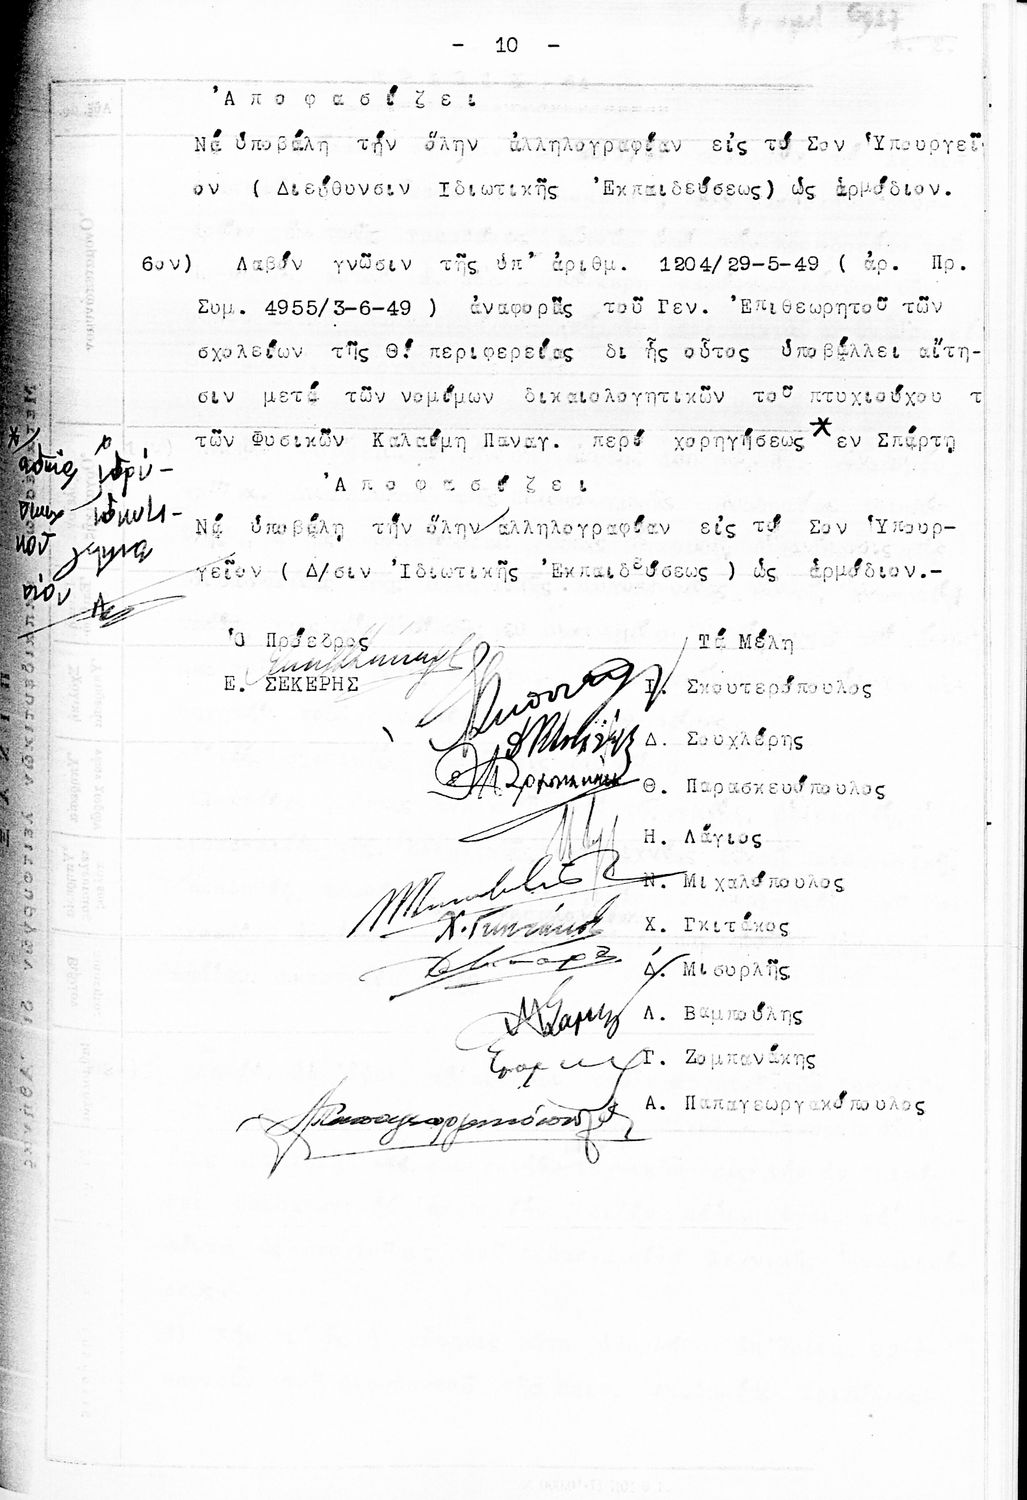 - 10 -
Ἀποφασίζει
Νά ὑποβάλη τήν ὅλην ἀλληλογραφίαν εἰς τό Σον Ὑπουργεῖ
ον ( Διεύθυνσιν Ιδιωτικῆς Ἐκπαιδεύσεως) ὡς ἁρμόδιον.
6ον) Λαβόν γνῶσιν τῆς ὑπ' ἀριθμ. 1204/29-5-49 ( ἀρ. Πρ.
Συμ. 4955/3-6-49 ) ἀναφορᾶς τοῦ Γεν. Ἐπιθεωρητοῦ τῶν
σχολείων τῆς Θ! περιφερείας δι ἧς οὗτος ὑποβάλλει αἴτη-
σιν μετά τῶν νομίμων δικαιολογητικῶν τοῦ πτυχιούχου τ
τῶν Φυσικῶν Καλαίμη Παναγ. περί χορηγήσεως * εν Σπάρτη
* ἀδείας ἱδρύ-
Ἀποφασίζει
Νά ὑποβάλη τήν ὅλην ἀλληλογραφίαν εἰς τό Σον Ὑπουρ-
γεῖον ( Δ/σιν Ἰδιωτικῆς Ἐκπαιδεύσεως ) ὡς ἁρμόδιον.-
Ὁ Πρόεδρος Τά Μέλη
Ε. ΣΕΚΕΡΗΣ Γ. Σκουτερόπουλος
Δ. Σουχλέρης
Θ. Παρασκευόπουλος
Η. Λάγιος
Ν. Μιχαλόπουλος
Χ. Γκιτάκος
Χ. Γκιτάκος
Δ. Μισυρλῆς
Λ. Βαμπούλης
Γ. Ζομπανάκης
Α. Παπαγεωργακόπουλος